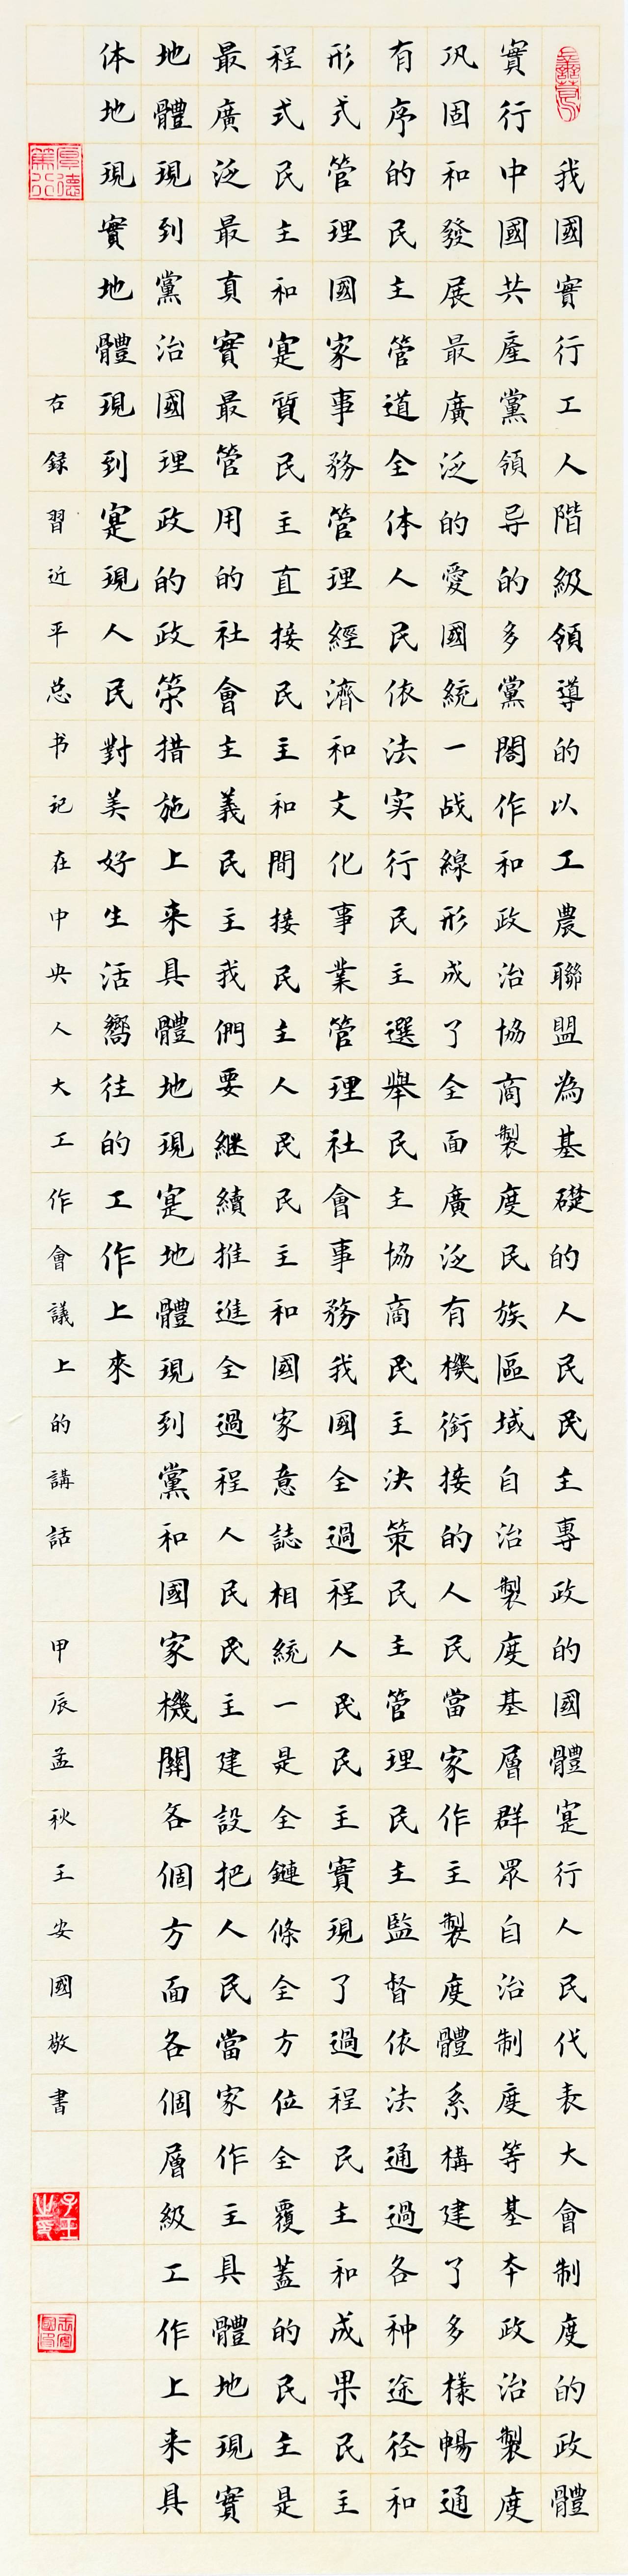 我國實行工人階級領導的以工農聯盟為基礎的人民民主專政的國體寔行人民代表大會制度的政體
實行中國共產黨領导的多黨閤作和政治協商製度民族區域自治製度基層群眾自治制度等基夲政治製度
巩固和發展最廣泛的愛國統一战線形成了全面廣泛有機銜接的人民當家作主製度體系構建了多樣暢通
有序的民主管道全体人民依法实行民主選舉民主協商民主決策民主管理民主監督依法通過各种途径和
形式管理國家事務管理經濟和文化事業管理社會事務我國全過程人民民主實現了過程民主和成果民主
程式民主和寔質民主直接民主和間接民主人民民主和國家意誌相統一是全鏈條全方位全覆蓋的民主是
最廣泛最真實最管用的社會主義民主我們要継續推進全過程人民民主建設把人民當家作主具體地現實
地體現到黨治國理政的政策措施上来具體地現寔地體現到黨和國家機關各個方面各個層級工作上来具
体地現實地體現到寔現人民對美好生活嚮往的工作上來
右録習近平总书记在中央人大工作會議上的講話 甲辰孟秋王安國敬書
厚德篤行